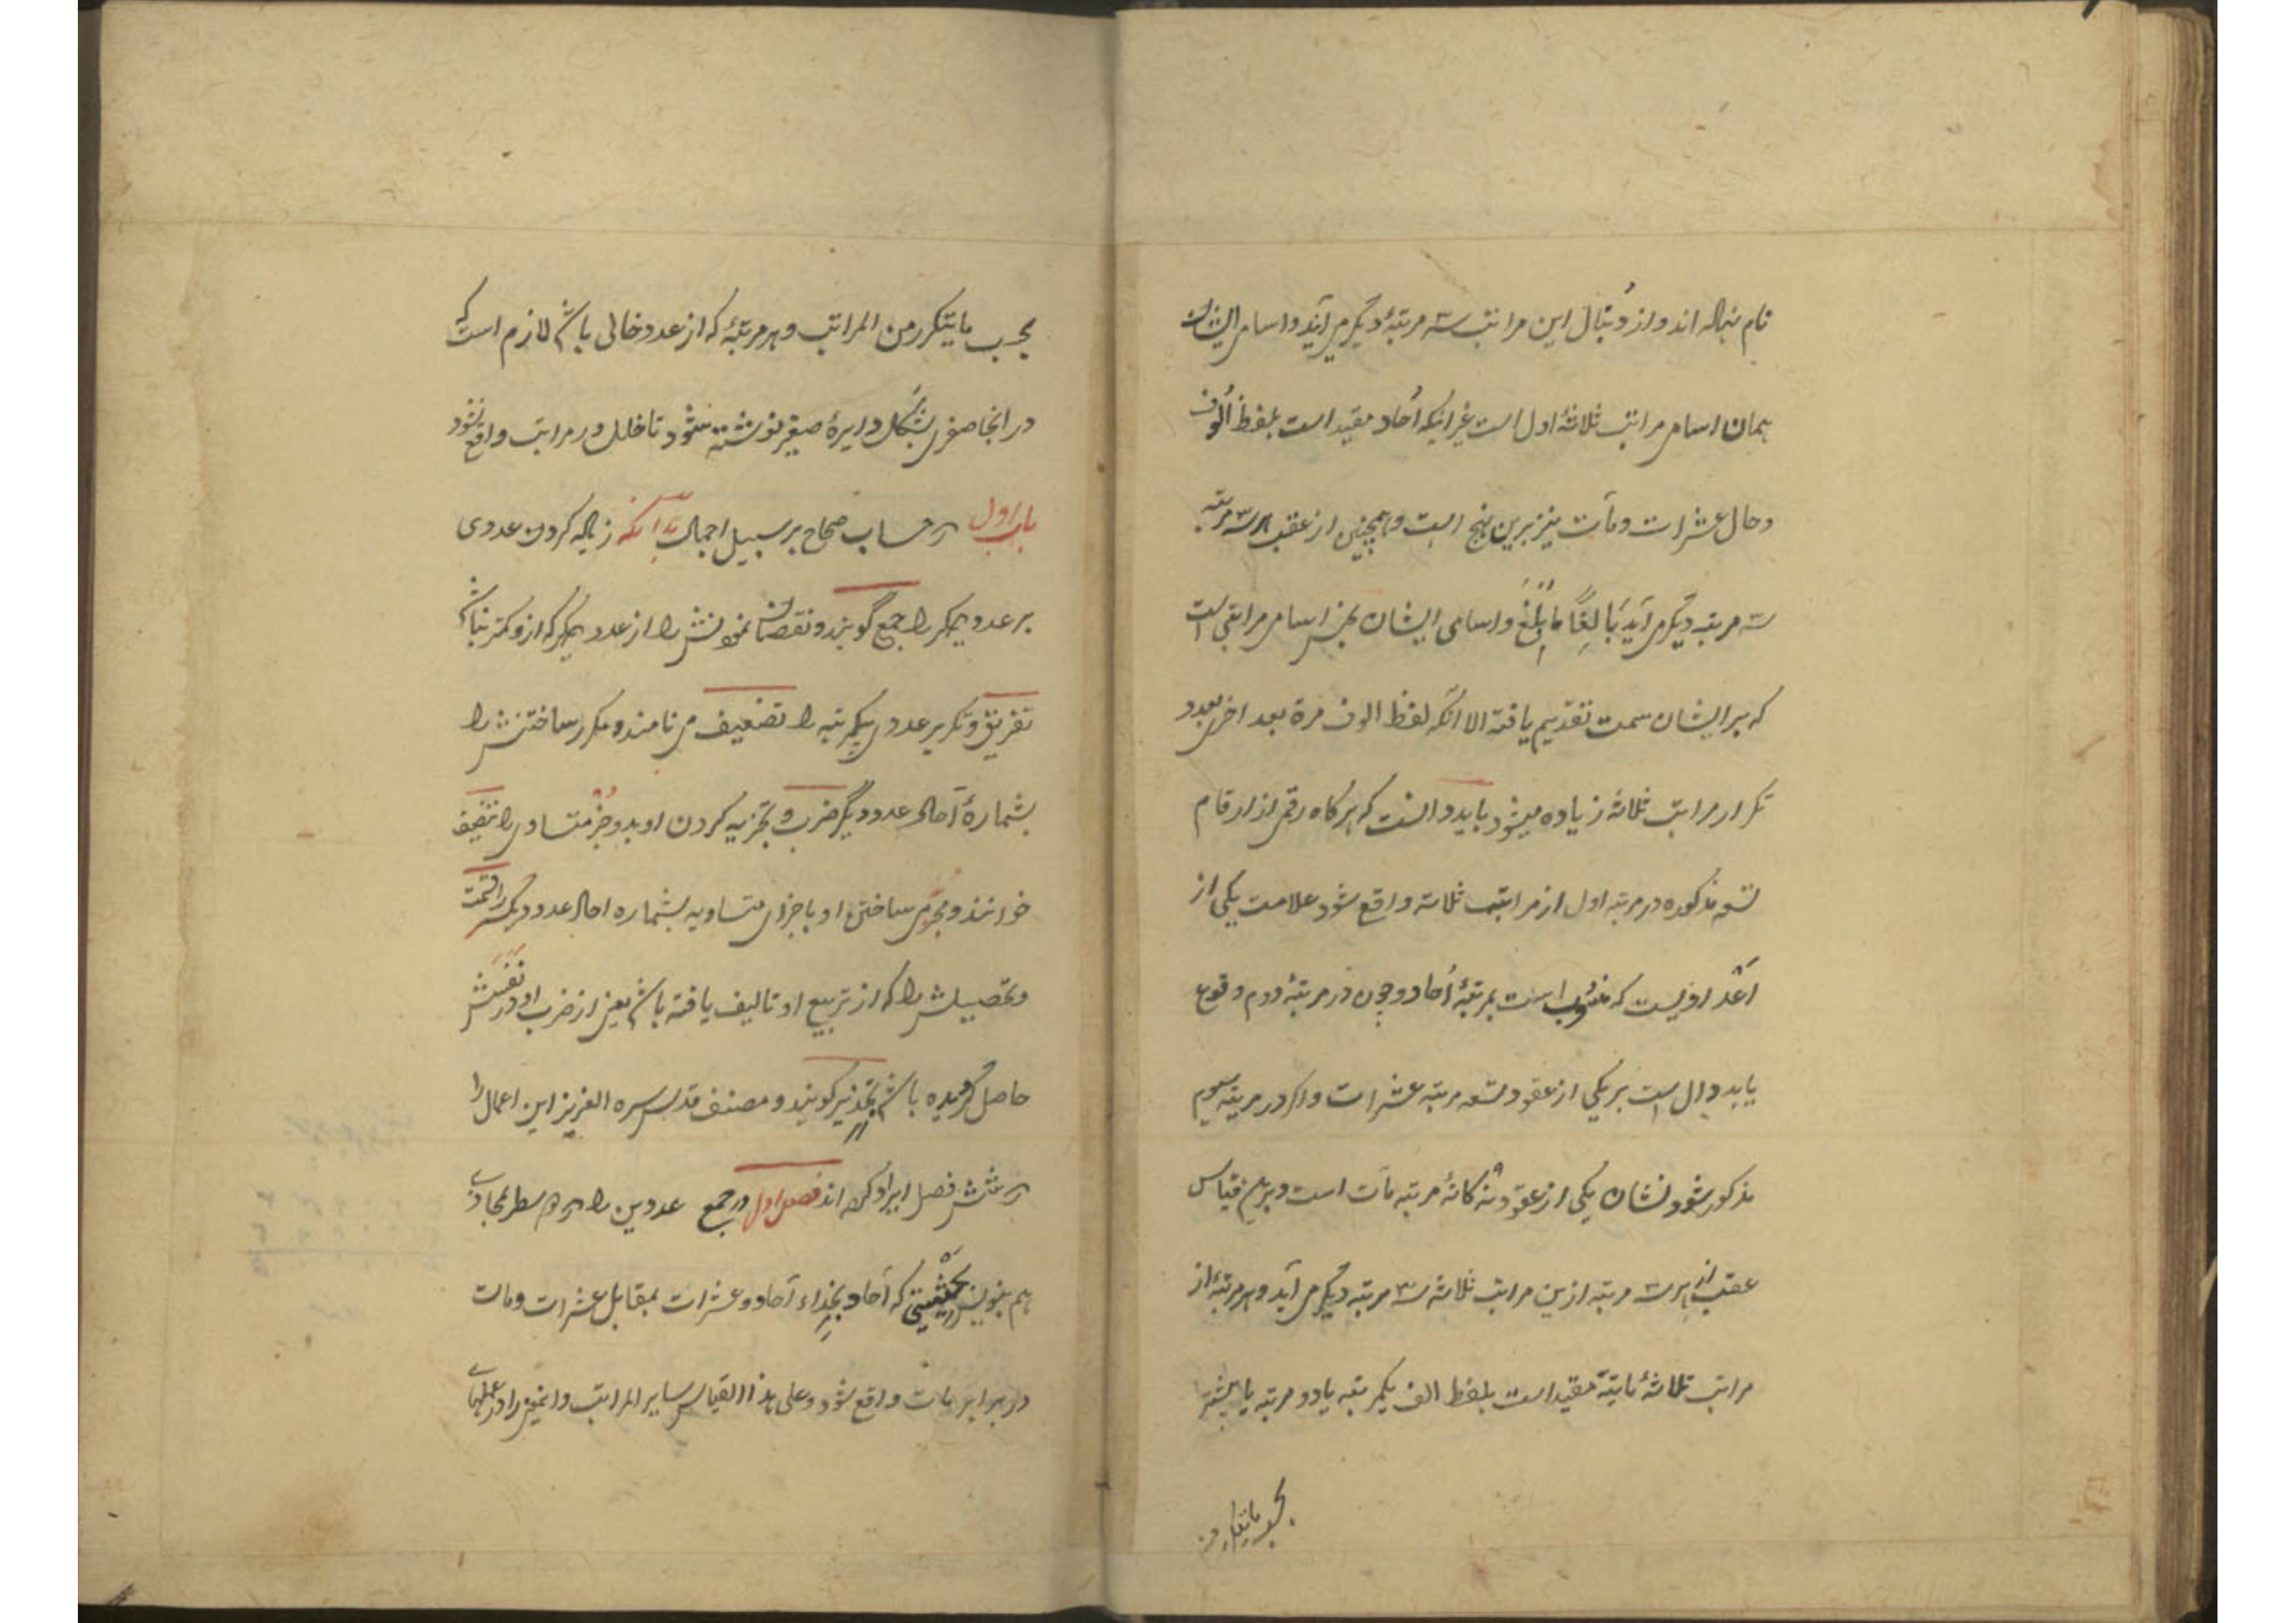 نام نهاده اند و از دنبال این مراتب سه مرتبهٔ دیگر می آید و اسامی ایشان
همان اسامی مراتب ثلاثهٔ اول است غیر اینکه آحاد مقید است بلفظ اُلوف
و حال عشرات و مآت نیز برین نهج است و همچنین از عقب هر سه مرتبه
سه مرتبه دیگر می آید بَالِغًا مَا بَلَغَ و اسامی ایشان بجنس اسامی مراتبی است
که بر ایشان سمت تقدیم یافته الا آنکه لفظ الوف مرة بعد اخری بعدد
تکرار مراتب ثلاثهٔ زیاده میشود باید دانست که هرگاه رقمی از ارقام
تسعه مذکوره در مرتبه اول از مراتب ثلاثه واقع شود علامت یکی از
اَعْدادیست که منسوب است بمرتبهٔ اُحاد و چون در مرتبهٔ دوم وقوع
یابد دال است بر یکی از عقود تسعه مرتبه عشرات و اگر در مرتبه سیوم
مذکور شود نشان یکی از عقود نه کانهٔ مرتبه مآت است و برین قیاس
عقب از هر سه مرتبه ازین مراتب ثلاثه سه مرتبه دیگر می آید و هر مرتبهٔ از
مراتب ثلاثهٔ ثانیة مقید است بلفظ الف یکمرتبه یا دو مرتبه یا بیشتر
بحسب ما یتکرر من
بحسب ما یتکرر من المراتب و هر مرتبهٔ که از عدد خالی باشد لازم است که
در انجا صفری بشکل دایرهٔ صغیر نوشته شود تا خلل در مراتب واقع نشود
باب اول در حساب صحاح بر سبیل اجمال بدانکه زیاده کردن عددی
بر عدد دیگر را جمع گویند و نقصان نمودنش را از عدد دیگر که ازو کمتر نباشد
تفریق و تکریر عددی یکمرتبه را تضعیف می نامند و مکرر ساختنش را
بشمارهٔ آحاد عدد دیگر ضرب و تجزیه کردن او بدو جزء متساوی را تنصیف
خوانند و مجزی ساختن او باجزای متساویه بشماره احاد عدد دیگر را قسمت
و تحصیلش را که از تربیع او تالیف یافته باشد یعنی از ضرب او در نفسش
حاصل گردیده باشد تجذیر گویند و مصنف قدس سره العزیز این اعمال را
در شش فصل ایراد کرده اند فصل اول در جمع عددین را در دو سطر محاذی
هم بنویس بحَیثیتی که آحاد بحذاء آحاد و عشرات بمقابل عشرات و مات
در برابر مات واقع شود و علی هذا القیاس سایر المراتب و اینمعنی را در عملهای